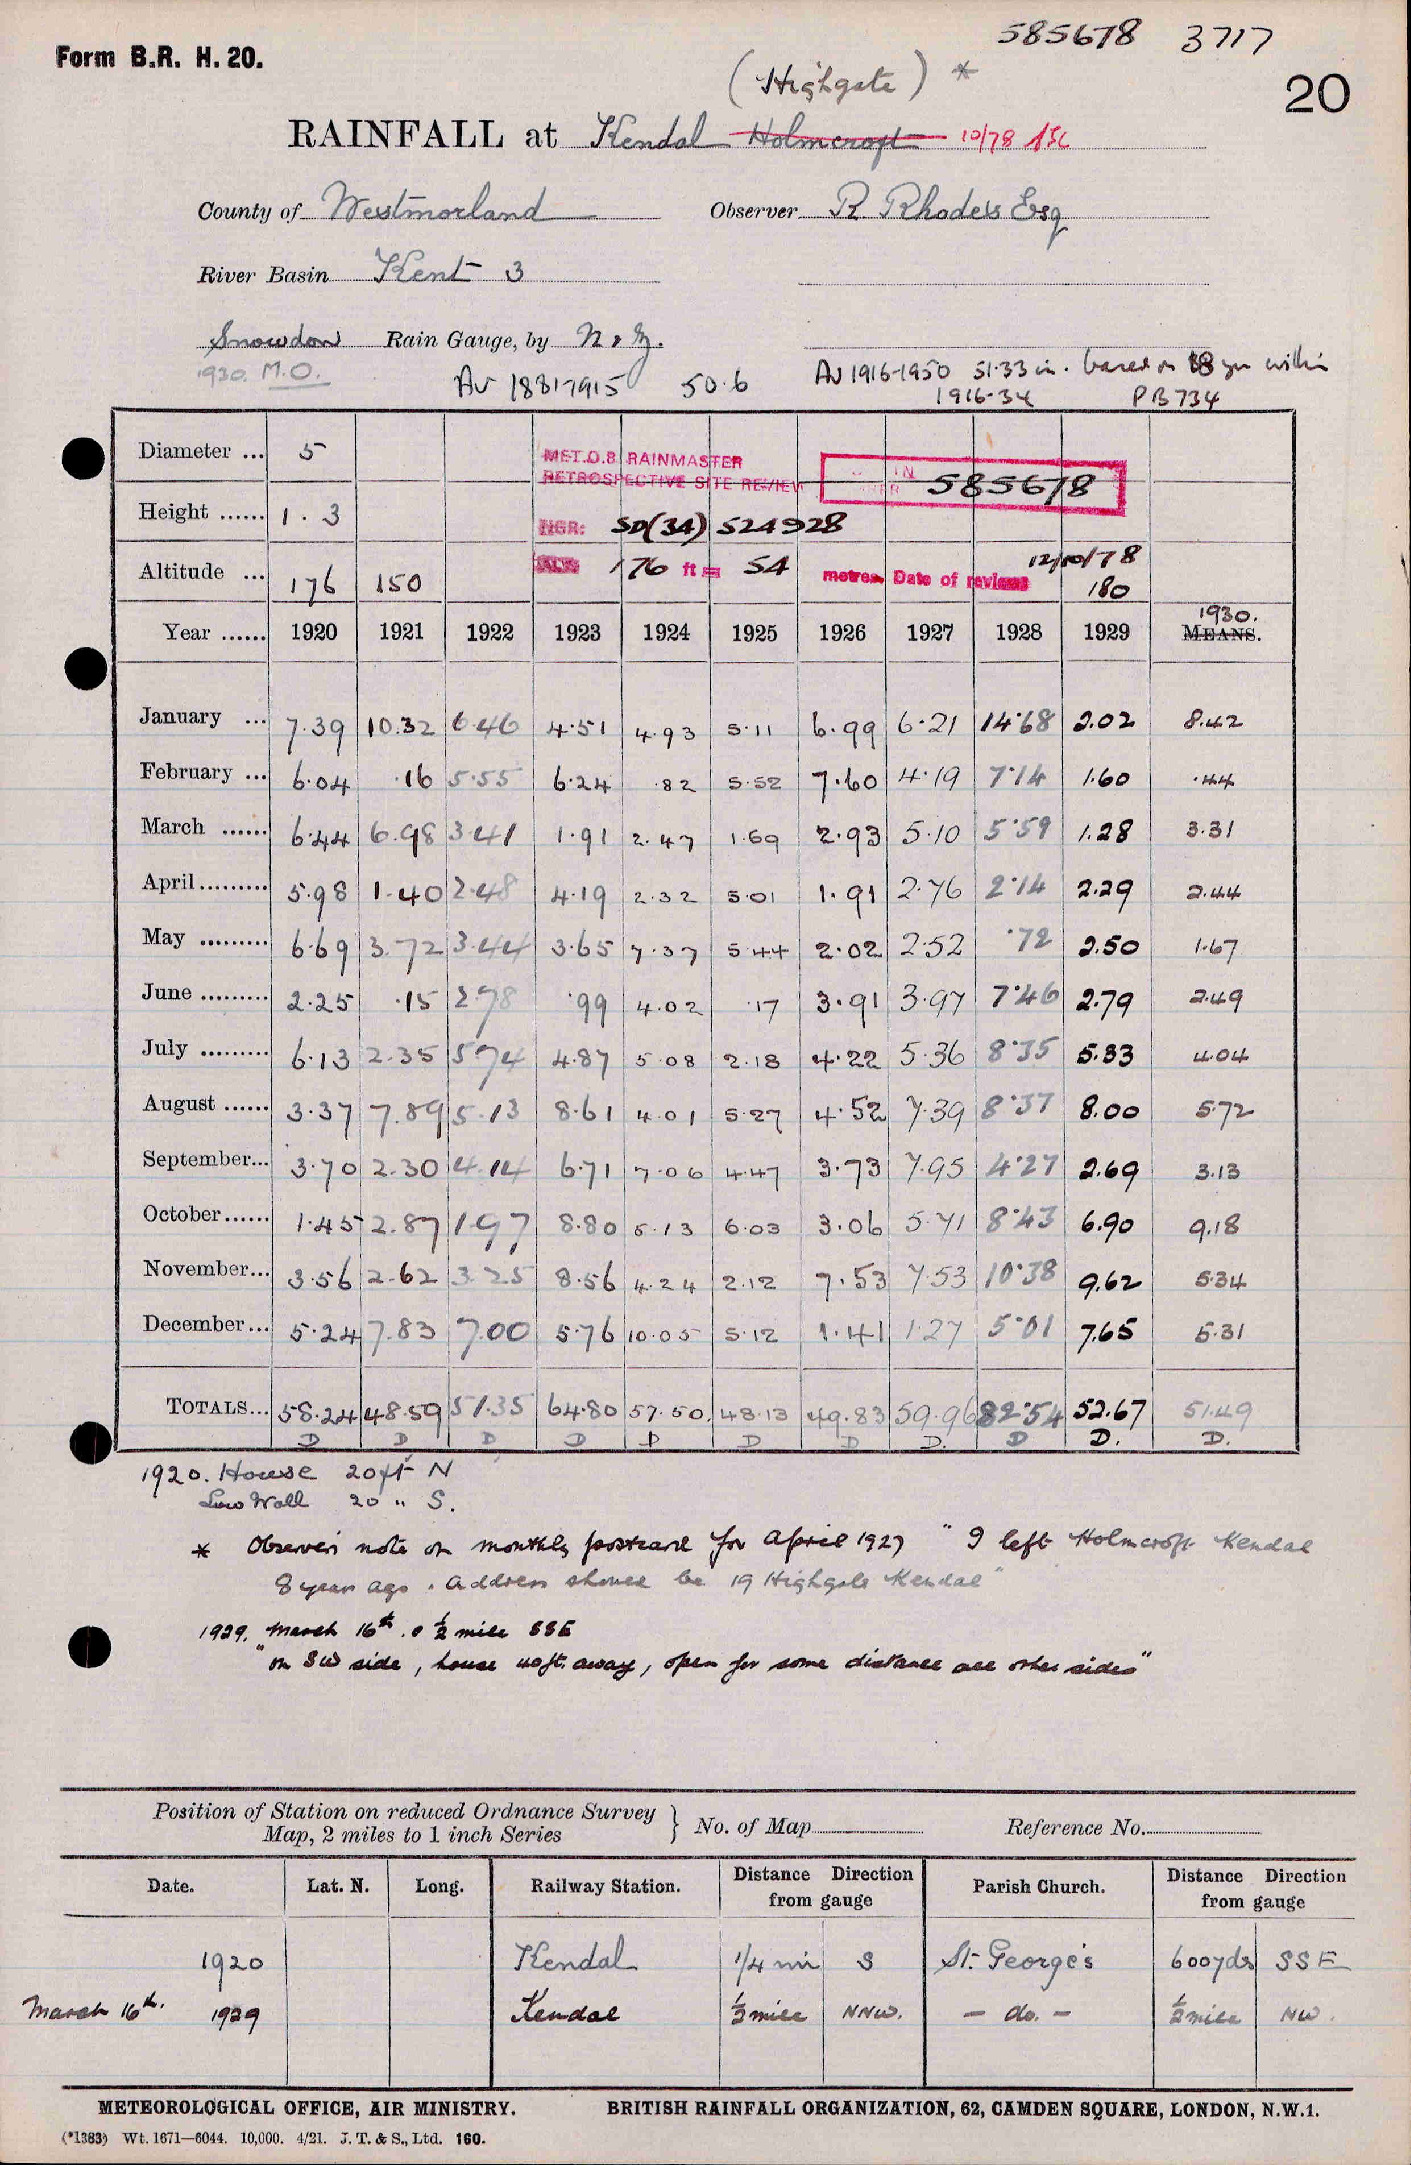 585678 3717
Form B.R. H. 20.
(Highgate) *
20
RAINFALL at Kendal Holmcroft 10/78
County of Westmorland Observer R Rhodes Esq
River Basin Kent 3
Snowdon Rain Gauge, by N & Z.
1930. M.O.
Av 1881-1915 50.6
Av 1916-1950 51.33 in. based on 18 yrs within
1916-34 PB734
Diameter ... 5
MET.O.8 RAINMASTER
RETROSPECTIVE SITE REVIEW
585678
Height ...... 1.3
NGR: SD(34) 524928
Altitude ... 176 150 180
176 ft = 54 metres Date of review 12/10/78
Year ...... 1920 1921 1922 1923 1924 1925 1926 1927 1928 1929 1930. MEANS.
January ... 7.39 10.32 6.46 4.51 4.93 5.11 6.99 6.21 14.68 2.02 8.42
February ... 6.04 .16 5.55 6.24 .82 5.52 7.60 4.19 7.14 1.60 .44
March ...... 6.44 6.98 3.41 1.91 2.47 1.69 2.93 5.10 5.59 1.28 3.31
April......... 5.98 1.40 2.48 4.19 2.32 5.01 1.91 2.76 2.14 2.29 2.44
May ......... 6.69 3.72 3.44 3.65 7.37 5.44 2.02 2.52 .72 2.50 1.67
June ......... 2.25 .15 2.78 .99 4.02 .17 3.91 3.97 7.46 2.79 2.49
July ......... 6.13 2.35 5.74 4.87 5.08 2.18 4.22 5.36 8.35 5.33 4.04
August ...... 3.37 7.89 5.13 8.61 4.01 5.27 4.52 7.39 8.37 8.00 5.72
September... 3.70 2.30 4.14 6.71 7.06 4.47 3.73 7.95 4.27 2.69 3.13
October...... 1.45 2.87 1.97 8.80 5.13 6.03 3.06 5.71 8.43 6.90 9.18
November... 3.56 2.62 3.25 8.56 4.24 2.12 7.53 7.53 10.38 9.62 5.34
December... 5.24 7.83 7.00 5.76 10.05 5.12 1.41 1.27 5.01 7.65 5.31
TOTALS... 58.24 48.59 51.35 64.80 57.50 48.13 49.83 59.96 82.54 52.67 51.49
D D D D D D D D. D D. D.
1920. House 20ft N
Low Wall 20 " S.
* Observer's note on monthly postcard for April 1927 "I left Holmcroft Kendal
8 years ago. Address should be 19 Highgate Kendal"
1929. March 16th. ½ mile SSE
"on SW side, house 40ft. away, open for some distance all other sides"
Position of Station on reduced Ordnance Survey
Map, 2 miles to 1 inch Series } No. of Map Reference No.
Date. Lat. N. Long. Railway Station. Distance Direction from gauge Parish Church. Distance Direction from gauge
1920 Kendal 1/4 mi S St. George's 600yds SSE
March 16th. 1929 Kendal ½ mile NNW. - do. - ½ mile NW.
METEOROLOGICAL OFFICE, AIR MINISTRY. BRITISH RAINFALL ORGANIZATION, 62, CAMDEN SQUARE, LONDON, N.W.1.
(*1383) Wt. 1671—6044. 10,000. 4/21. J. T. & S., Ltd. 160.